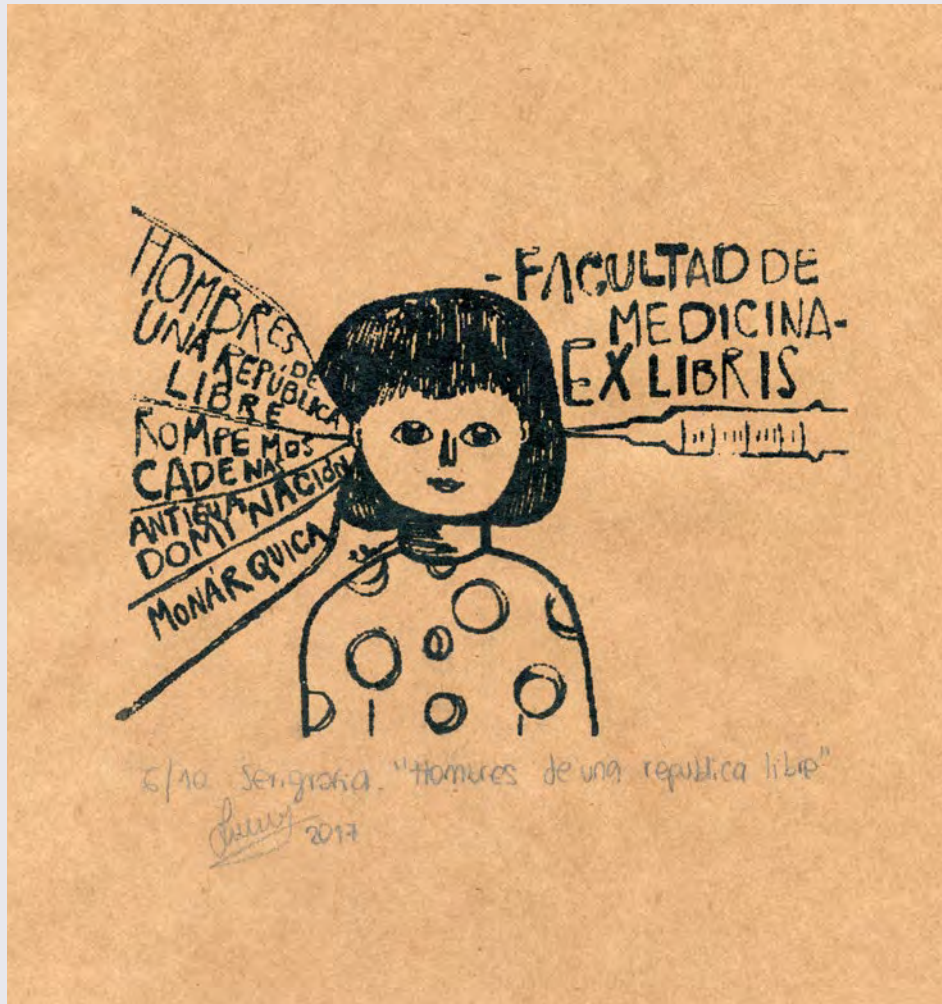 HOMBRES DE
UNA REPÚBLICA
LIBRE
ROMPEMOS
CADENAS
ANTIGUA
DOMINACIÓN
MONÁRQUICA
- FACULTAD DE
MEDICINA-
EX LIBRIS
6/10 Serigrafia. "Hombres de una republica libre"
2017